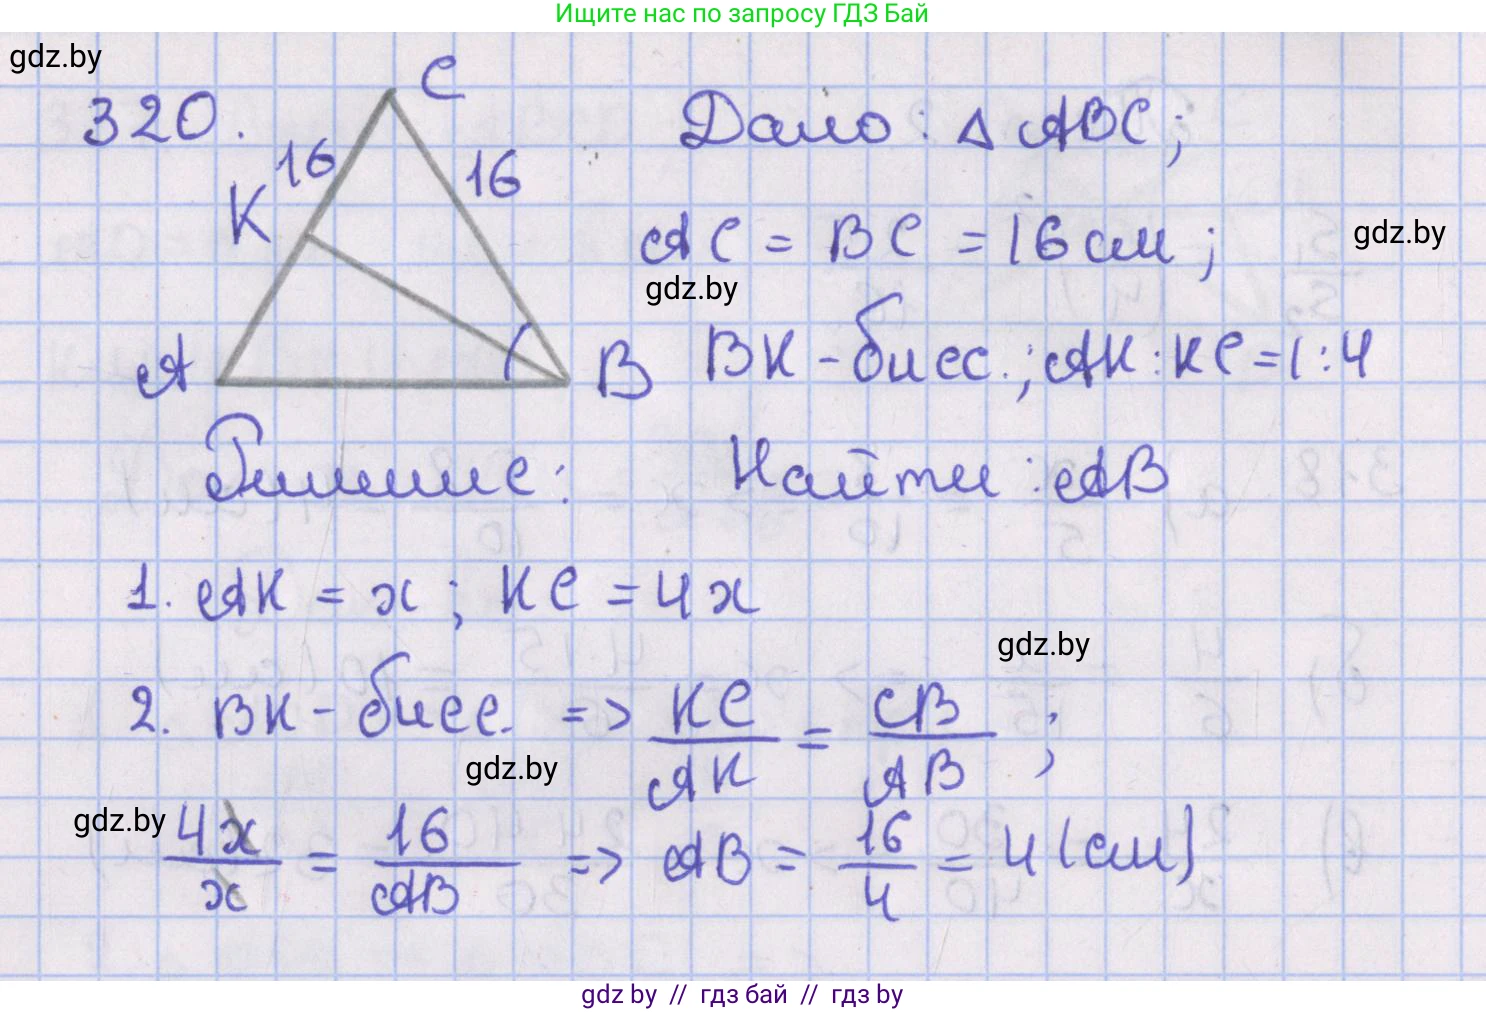 Ищите нас по запросу ГДЗ Бай
gdz.by
320.
C
16
16
K
A
B
Дано: Δ ABC;
AC = BC = 16 см;
gdz.by
gdz.by
BK - бисс.; AK : KC = 1 : 4
Решение:
Найти: AB
1. AK = x; KC = 4x
gdz.by
2. BK - бисс. => KC/AK = CB/AB;
gdz.by
gdz.by
4x/x = 16/AB => AB = 16/4 = 4 (см)
gdz by // гдз бай // гдз by